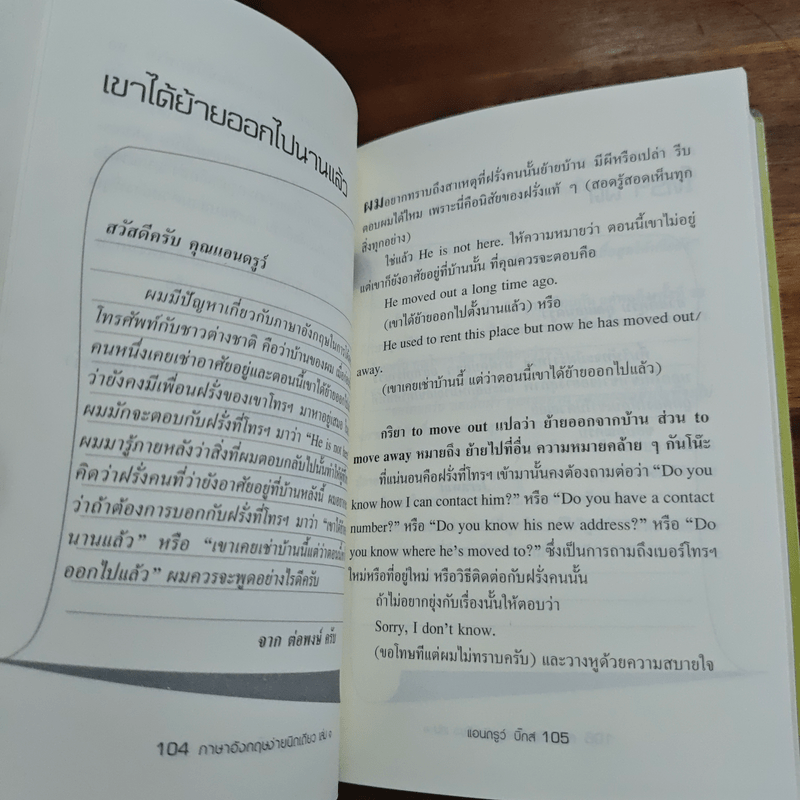 เขาได้ย้ายออกไปนานแล้ว
สวัสดีครับ คุณแอนดรูว์
ผมมีปัญหาเกี่ยวกับภาษาอังกฤษในการ
โทรศัพท์กับชาวต่างชาติ คือว่าบ้านของผม
คนหนึ่งเคยเช่าอาศัยอยู่และตอนนี้เขาได้ย้ายออก
ว่ายังคงมีเพื่อนฝรั่งของเขาโทรฯ มาหาอยู่เสมอ
ผมมักจะตอบกับฝรั่งที่โทรฯ มาว่า "He is not here
ผมมารู้ภายหลังว่าสิ่งที่ผมตอบกลับไปนั้นทำให้
คิดว่าฝรั่งคนที่ว่ายังอาศัยอยู่ที่บ้านหลังนี้
ว่าถ้าต้องการบอกกับฝรั่งที่โทรฯ มาว่า
นานแล้ว" หรือ "เขาเคยเช่าบ้านนี้แต่ว่าตอนนี้
ออกไปแล้ว" ผมควรจะพูดอย่างไรดีครับ
จาก ต่อพงษ์ ครับ
104 ภาษาอังกฤษง่ายนิดเดียว เล่ม
ผมอยากทราบถึงสาเหตุที่ฝรั่งคนนั้นย้ายบ้าน มีผีหรือเปล่า รีบ
ตอบผมได้ไหม เพราะนี่คือนิสัยของฝรั่งแท้ ๆ (สอดรู้สอดเห็นทุก
สิ่งทุกอย่าง)
ใช่แล้ว He is not here. ให้ความหมายว่า ตอนนี้เขาไม่อยู่
แต่เขาก็ยังอาศัยอยู่ที่บ้านนั้น ที่คุณควรจะตอบคือ
He moved out a long time ago.
(เขาได้ย้ายออกไปตั้งนานแล้ว) หรือ
He used to rent this place but now he has moved out/
away.
(เขาเคยเช่าบ้านนี้ แต่ว่าตอนนี้เขาได้ย้ายออกไปแล้ว)
กริยา to move out แปลว่า ย้ายออกจากบ้าน ส่วน to
move away หมายถึง ย้ายไปที่อื่น ความหมายคล้าย ๆ กันโน๊ะ
ที่แน่นอนคือฝรั่งที่โทรฯ เข้ามานั้นคงต้องถามต่อว่า "Do you
know how I can contact him?" หรือ "Do you have a contact
number?" หรือ "Do you know his new address?" หรือ "Do
you know where he's moved to?" ซึ่งเป็นการถามถึงเบอร์โทรฯ
ใหม่หรือที่อยู่ใหม่ หรือวิธีติดต่อกับฝรั่งคนนั้น
ถ้าไม่อยากยุ่งกับเรื่องนั้นให้ตอบว่า
Sorry, I don't know.
(ขอโทษทีแต่ผมไม่ทราบครับ) และวางหูด้วยความสบายใจ
แอนดรูว์ บิ๊กส์ 105